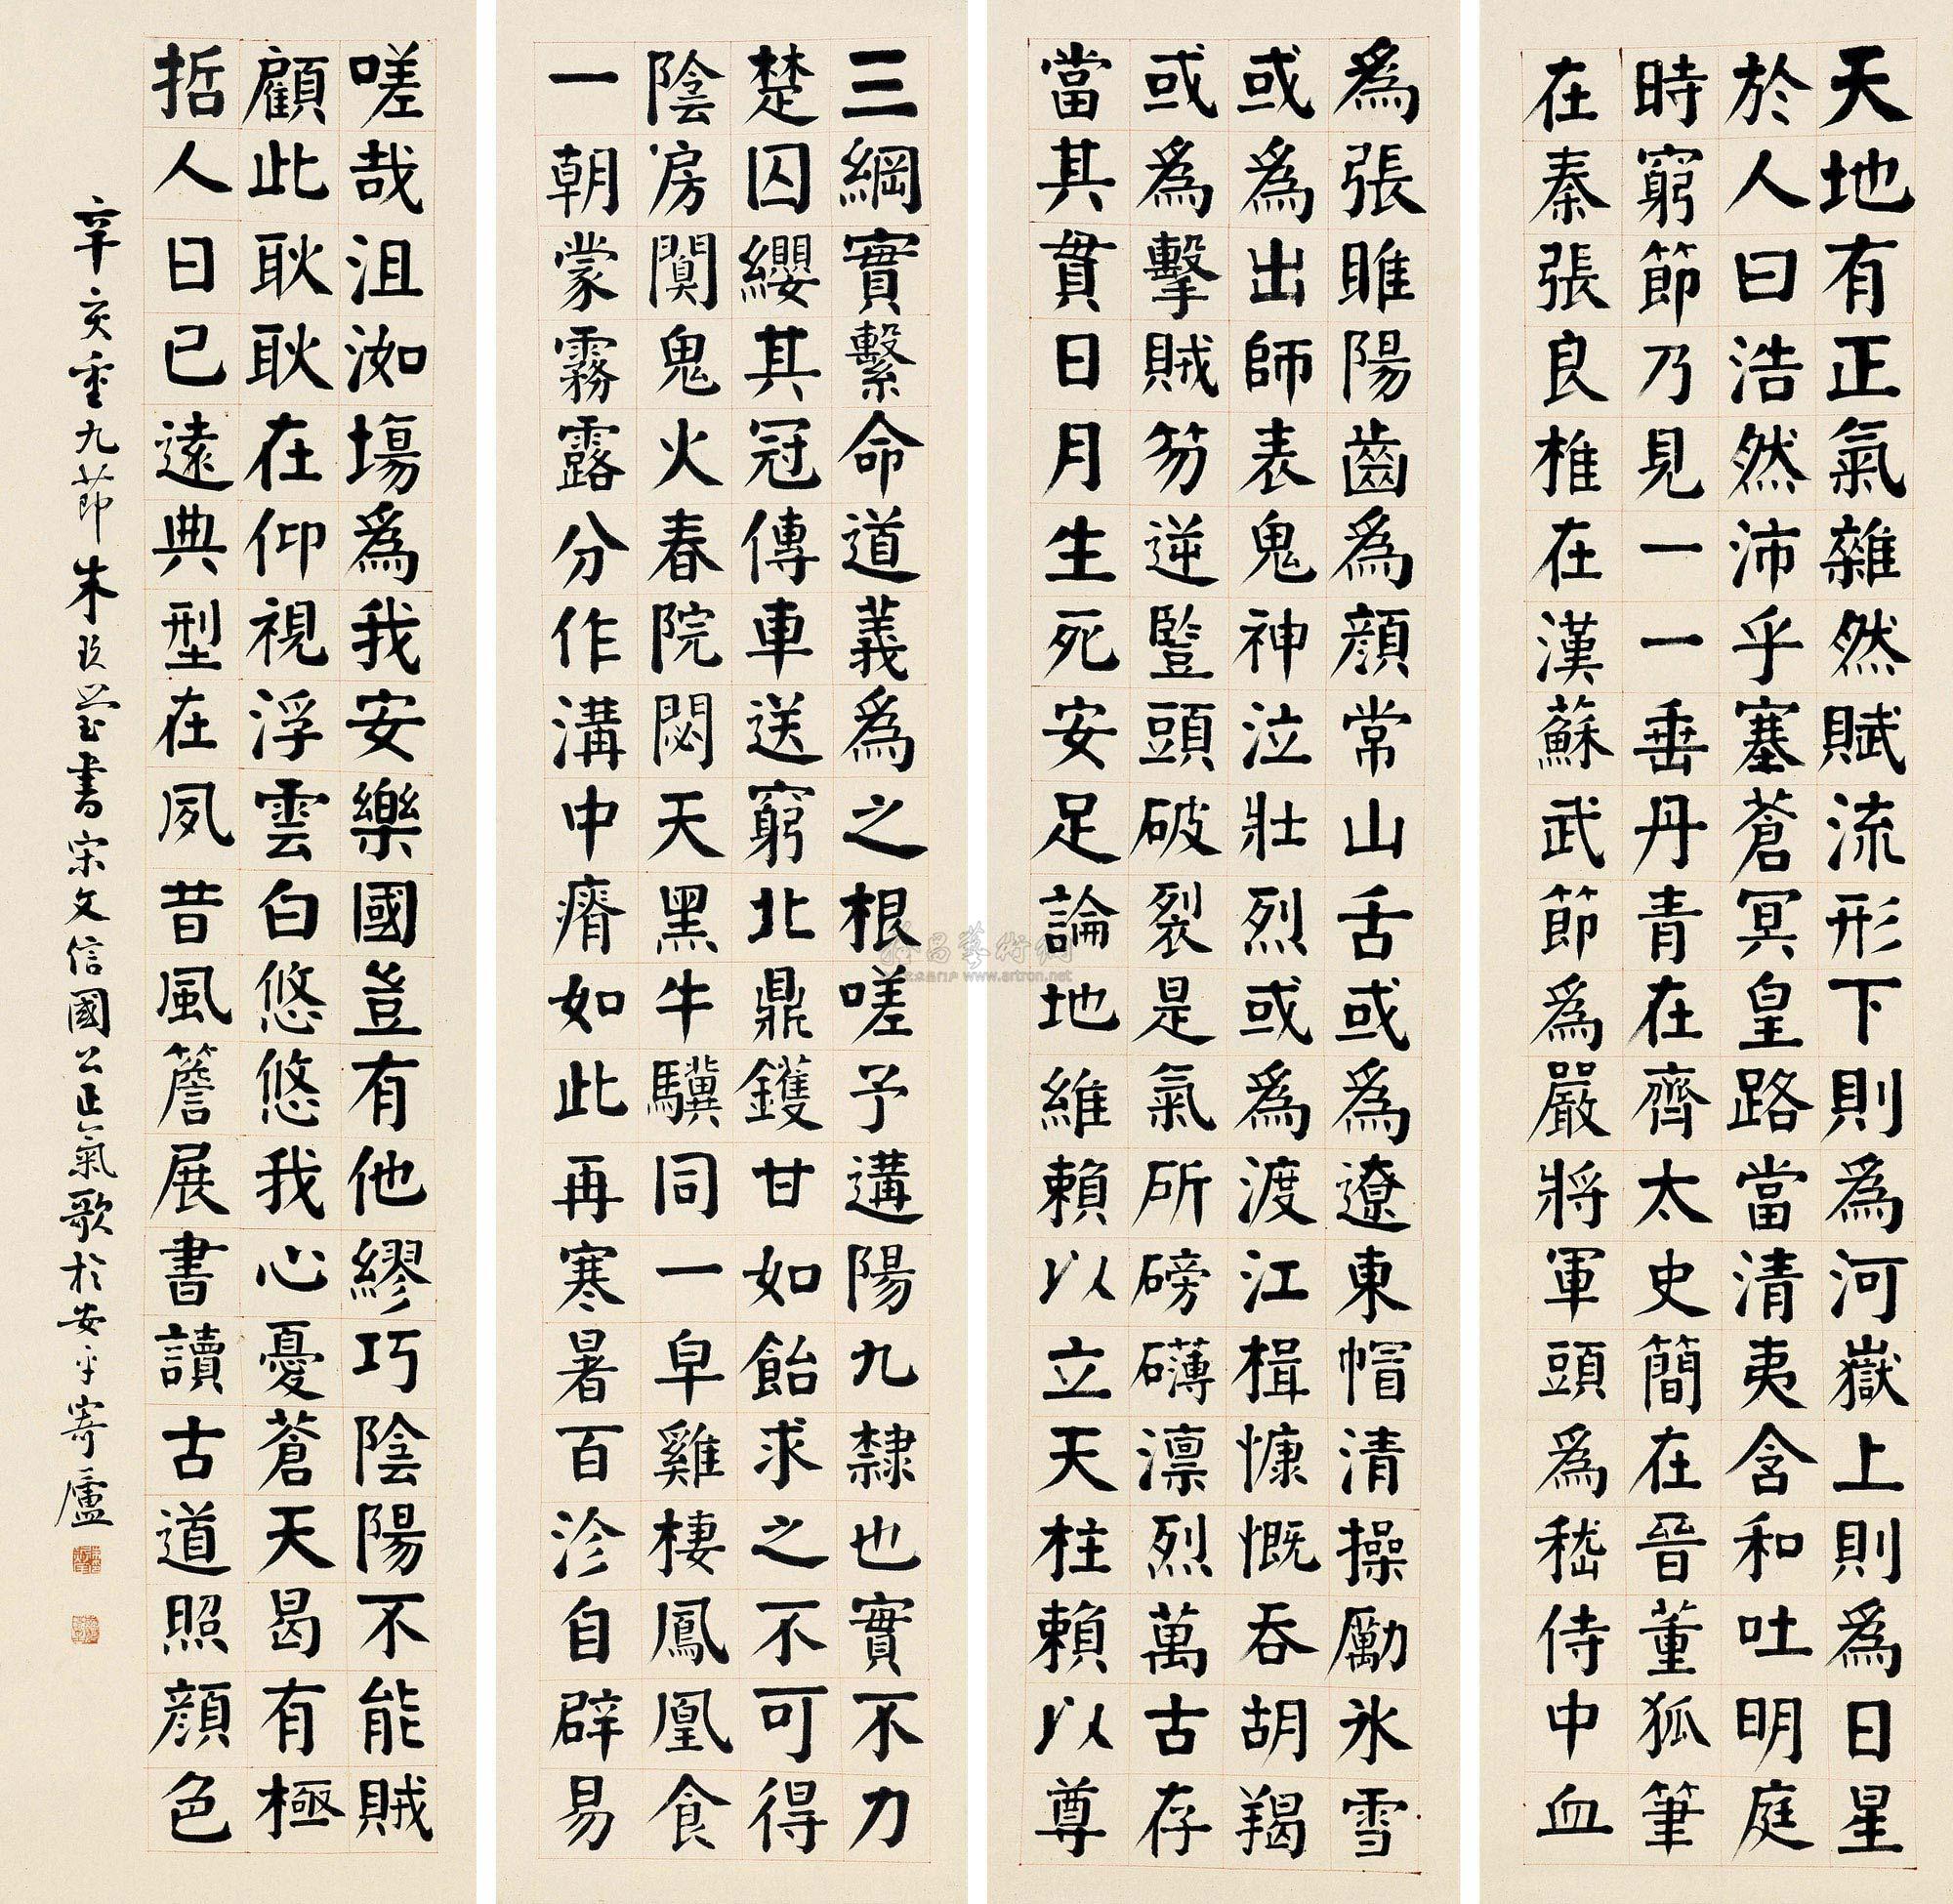 天地有正氣雜然賦流形下則爲河嶽上則爲日星
於人曰浩然沛乎塞蒼冥皇路當清夷含和吐明庭
時窮節乃見一一垂丹青在齊太史簡在晉董狐筆
在秦張良椎在漢蘇武節爲嚴將軍頭爲嵇侍中血
爲張睢陽齒爲顏常山舌或爲遼東帽清操勵冰雪
或爲出師表鬼神泣壯烈或爲渡江楫慷慨吞胡羯
或爲擊賊笏逆豎頭破裂是氣所磅礴凛烈萬古存
當其貫日月生死安足論地維賴以立天柱賴以尊
三綱實繫命道義爲之根嗟予遘陽九隸也實不力
楚囚纓其冠傳車送窮北鼎鑊甘如飴求之不可得
陰房闃鬼火春院閟天黑牛驥同一皁雞棲鳳凰食
一朝蒙霧露分作溝中瘠如此再寒暑百沴自辟易
嗟哉沮洳塲爲我安樂國豈有他繆巧陰陽不能賊
顧此耿耿在仰視浮雲白悠悠我心憂蒼天曷有極
哲人日已遠典型在夙昔風簷展書讀古道照顏色
辛亥重九節朱玖瑩書宋文信國公正氣歌於安平寄廬
雅昌藝術網
www.artron.net